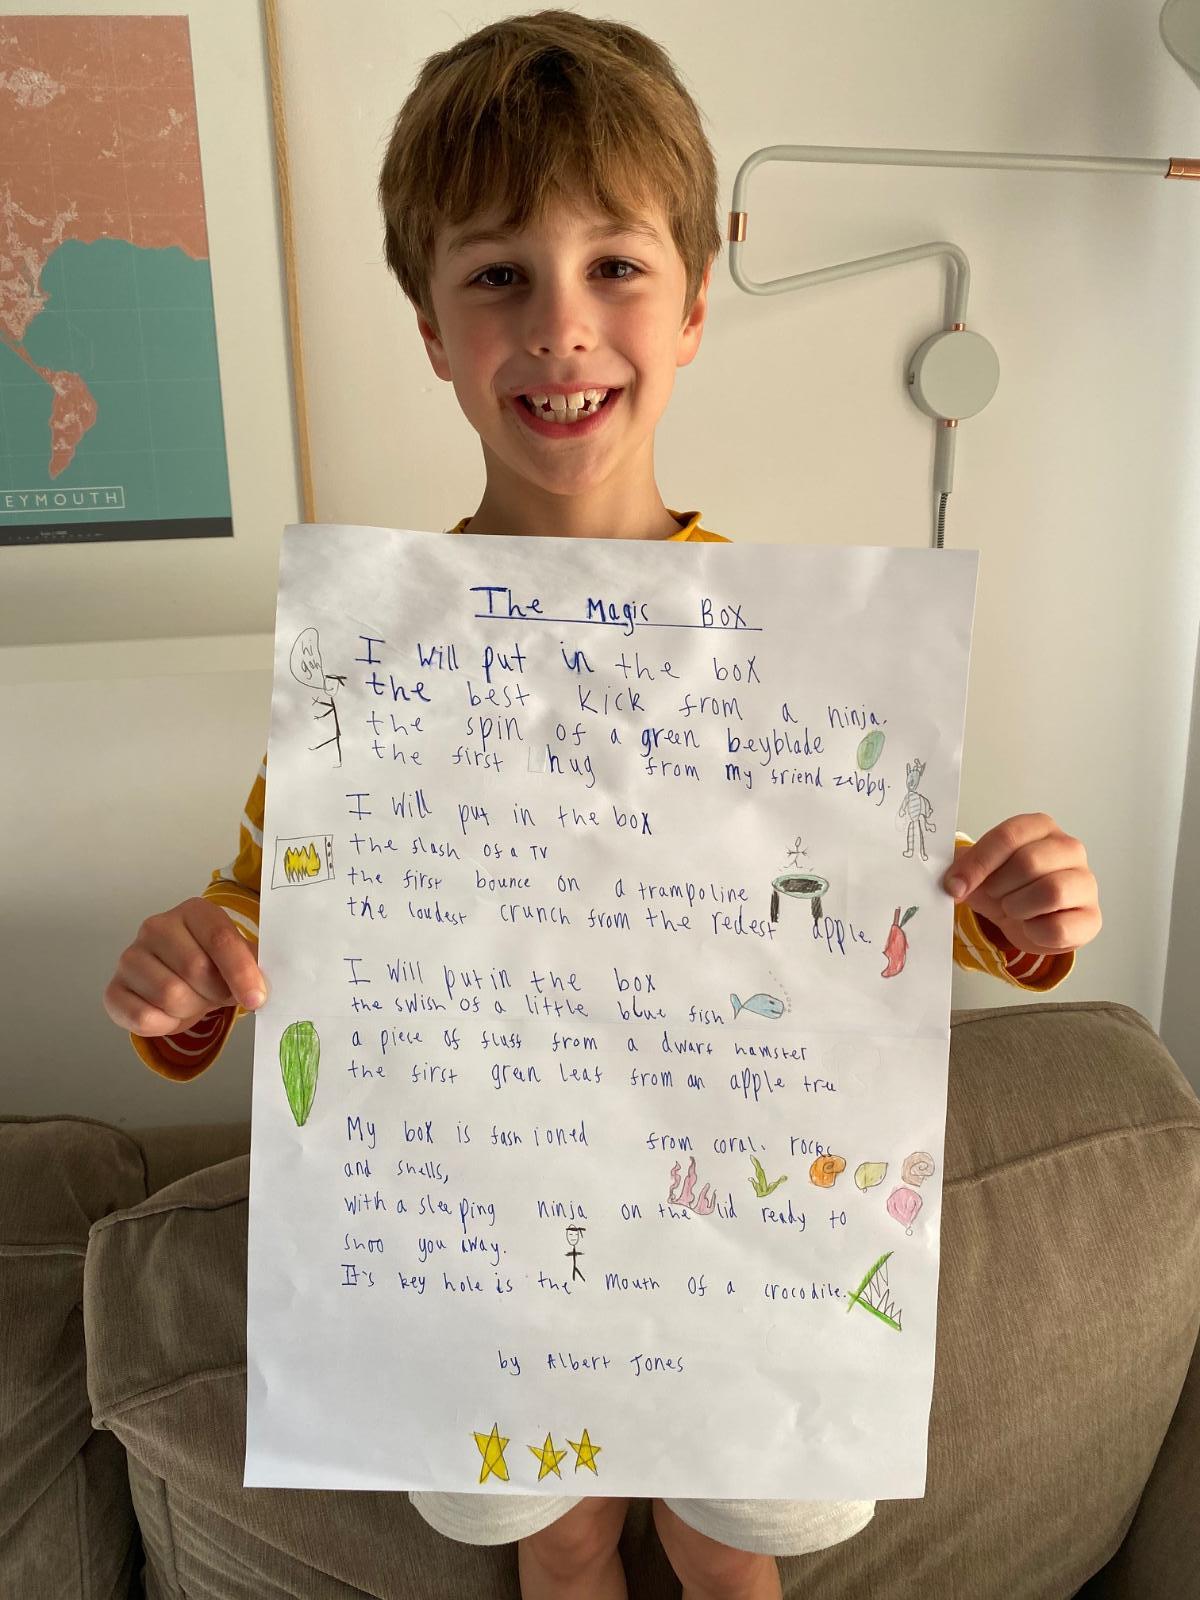 EYMOUTH
The Magic Box
hi
gah
I will put in the box
the best kick from a ninja.
the spin of a green beyblade
the first hug from my friend zebby.
I will put in the box
the flash of a TV
the first bounce on a trampoline
the loudest crunch from the redest apple.
I will put in the box
the swish of a little blue fish
a piece of fluff from a dwarf hamster
the first green leaf from an apple tree
My box is fashioned from coral. rocks
and shells,
with a sleeping ninja on the lid ready to
shoo you away.
It's key hole is the mouth of a crocodile.
by Albert Jones